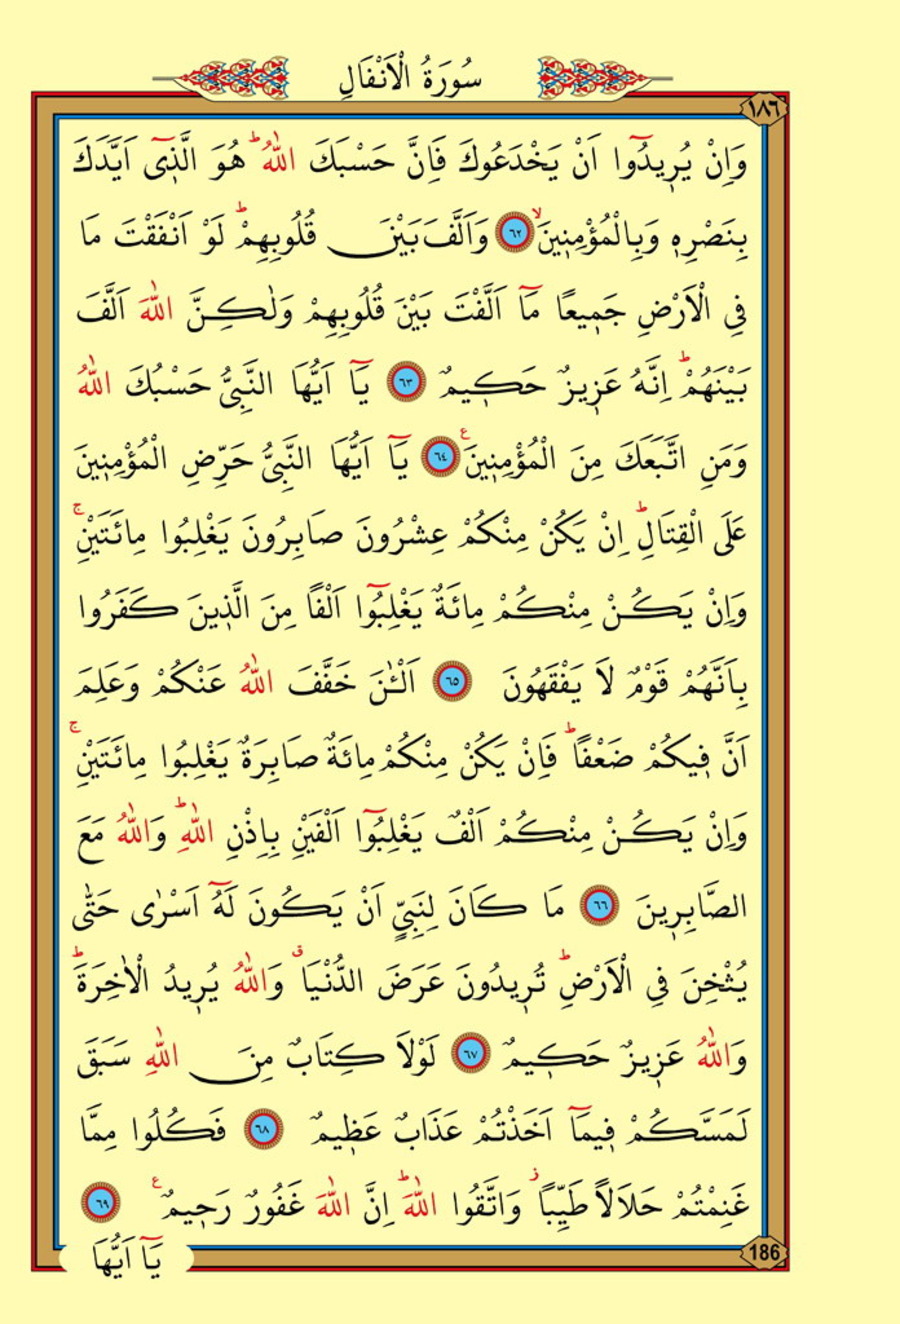 سُورَةُ الْاَنْفَالِ
١٨٦
وَاِنْ يُرٖيدُٓوا اَنْ يَخْدَعُوكَ فَاِنَّ حَسْبَكَ اللّٰهُؕ هُوَ الَّذٖٓى اَيَّدَكَ
بِنَصْرِهٖ وَبِالْمُؤْمِنٖينَۙ ٦٢ وَاَلَّفَ بَيْنَ قُلُوبِهِمْؕ لَوْ اَنْفَقْتَ مَا
فِى الْاَرْضِ جَمٖيعًا مَٓا اَلَّفْتَ بَيْنَ قُلُوبِهِمْ وَلٰكِنَّ اللّٰهَ اَلَّفَ
بَيْنَهُمْؕ اِنَّهُ عَزٖيزٌ حَكٖيمٌ ٦٣ يَٓا اَيُّهَا النَّبِىُّ حَسْبُكَ اللّٰهُ
وَمَنِ اتَّبَعَكَ مِنَ الْمُؤْمِنٖينَ ع ٦٤ يَٓا اَيُّهَا النَّبِىُّ حَرِّضِ الْمُؤْمِنٖينَ
عَلَى الْقِتَالِؕ اِنْ يَكُنْ مِنْكُمْ عِشْرُونَ صَابِرُونَ يَغْلِبُوا مِائَتَيْنِۚ
وَاِنْ يَكُنْ مِنْكُمْ مِائَةٌ يَغْلِبُٓوا اَلْفًا مِنَ الَّذٖينَ كَفَرُوا
بِاَنَّهُمْ قَوْمٌ لَا يَفْقَهُونَ ٦٥ اَلْـٰٔنَ خَفَّفَ اللّٰهُ عَنْكُمْ وَعَلِمَ
اَنَّ فٖيكُمْ ضَعْفًاؕ فَاِنْ يَكُنْ مِنْكُمْ مِائَةٌ صَابِرَةٌ يَغْلِبُوا مِائَتَيْنِۚ
وَاِنْ يَكُنْ مِنْكُمْ اَلْفٌ يَغْلِبُٓوا اَلْفَيْنِ بِاِذْنِ اللّٰهِؕ وَاللّٰهُ مَعَ
الصَّابِرٖينَ ٦٦ مَا كَانَ لِنَبِىٍّ اَنْ يَكُونَ لَهُٓ اَسْرٰى حَتّٰى
يُثْخِنَ فِى الْاَرْضِؕ تُرٖيدُونَ عَرَضَ الدُّنْيَاࣗ وَاللّٰهُ يُرٖيدُ الْاٰخِرَةَؕ
وَاللّٰهُ عَزٖيزٌ حَكٖيمٌ ٦٧ لَوْلَا كِتَابٌ مِنَ اللّٰهِ سَبَقَ
لَمَسَّكُمْ فٖيمَٓا اَخَذْتُمْ عَذَابٌ عَظٖيمٌ ٦٨ فَكُلُوا مِمَّا
غَنِمْتُمْ حَلَالًا طَيِّبًاؗ وَاتَّقُوا اللّٰهَؕ اِنَّ اللّٰهَ غَفُورٌ رَحٖيمٌ ع ٦٩
يَٓا اَيُّهَا
186